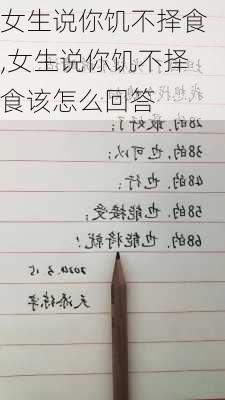 女生说你饥不择食
,女生说你饥不择
食该怎么回答
28的, 最好了;
38的, 也可以;
48的, 也行;
58的, 也能接受;
68的, 也能将就!
2024.3.15
天添练字